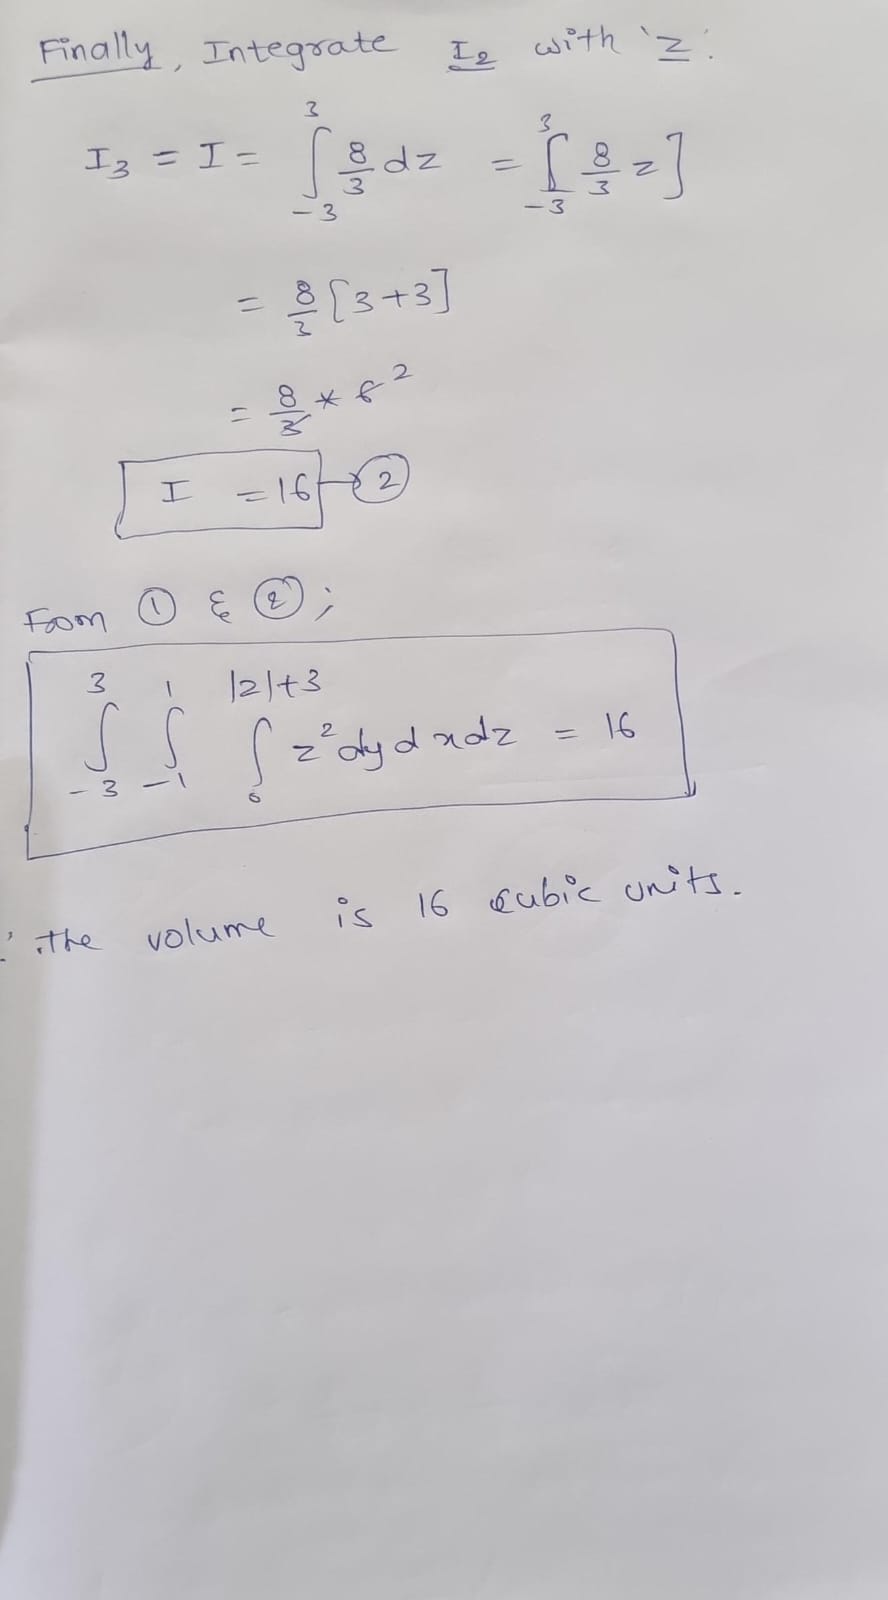 Finally, Integrate I2 with 'z'.
I3 = I = ∫_{-3}^{3} 8/3 dz = _{-3}^{3}[8/3 z]
= 8/3 [3+3]
= 8/3 * 6 2
I = 16 → ②
From ① & ②;
∫_{-3}^{3} ∫_{-1}^{1} ∫_{0}^{|z|+3} z² dy dx dz = 16
∴ the volume is 16 cubic units.